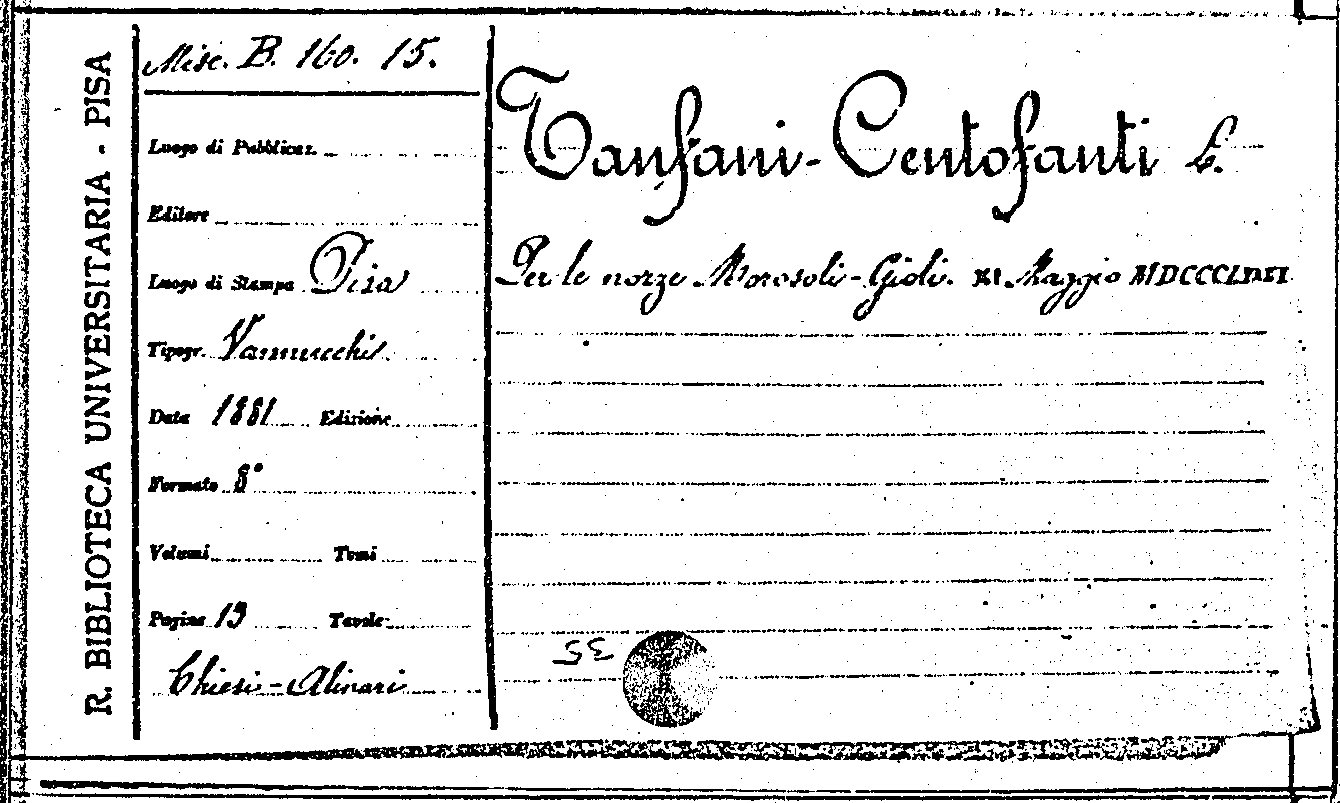 R. BIBLIOTECA UNIVERSITARIA - PISA
Misc. B. 160. 15.
Luogo di Pubblicaz.
Editore
Luogo di Stampa Pisa
Tipogr. Vannucchi
Data 1881 Edizione
Formato 8°
Volumi Tomi
Pagine 13 Tavole
Chiesi-Alinari
Tanfani-Centofanti L.
Per le nozze Morosoli-Gioli. XI Maggio
35